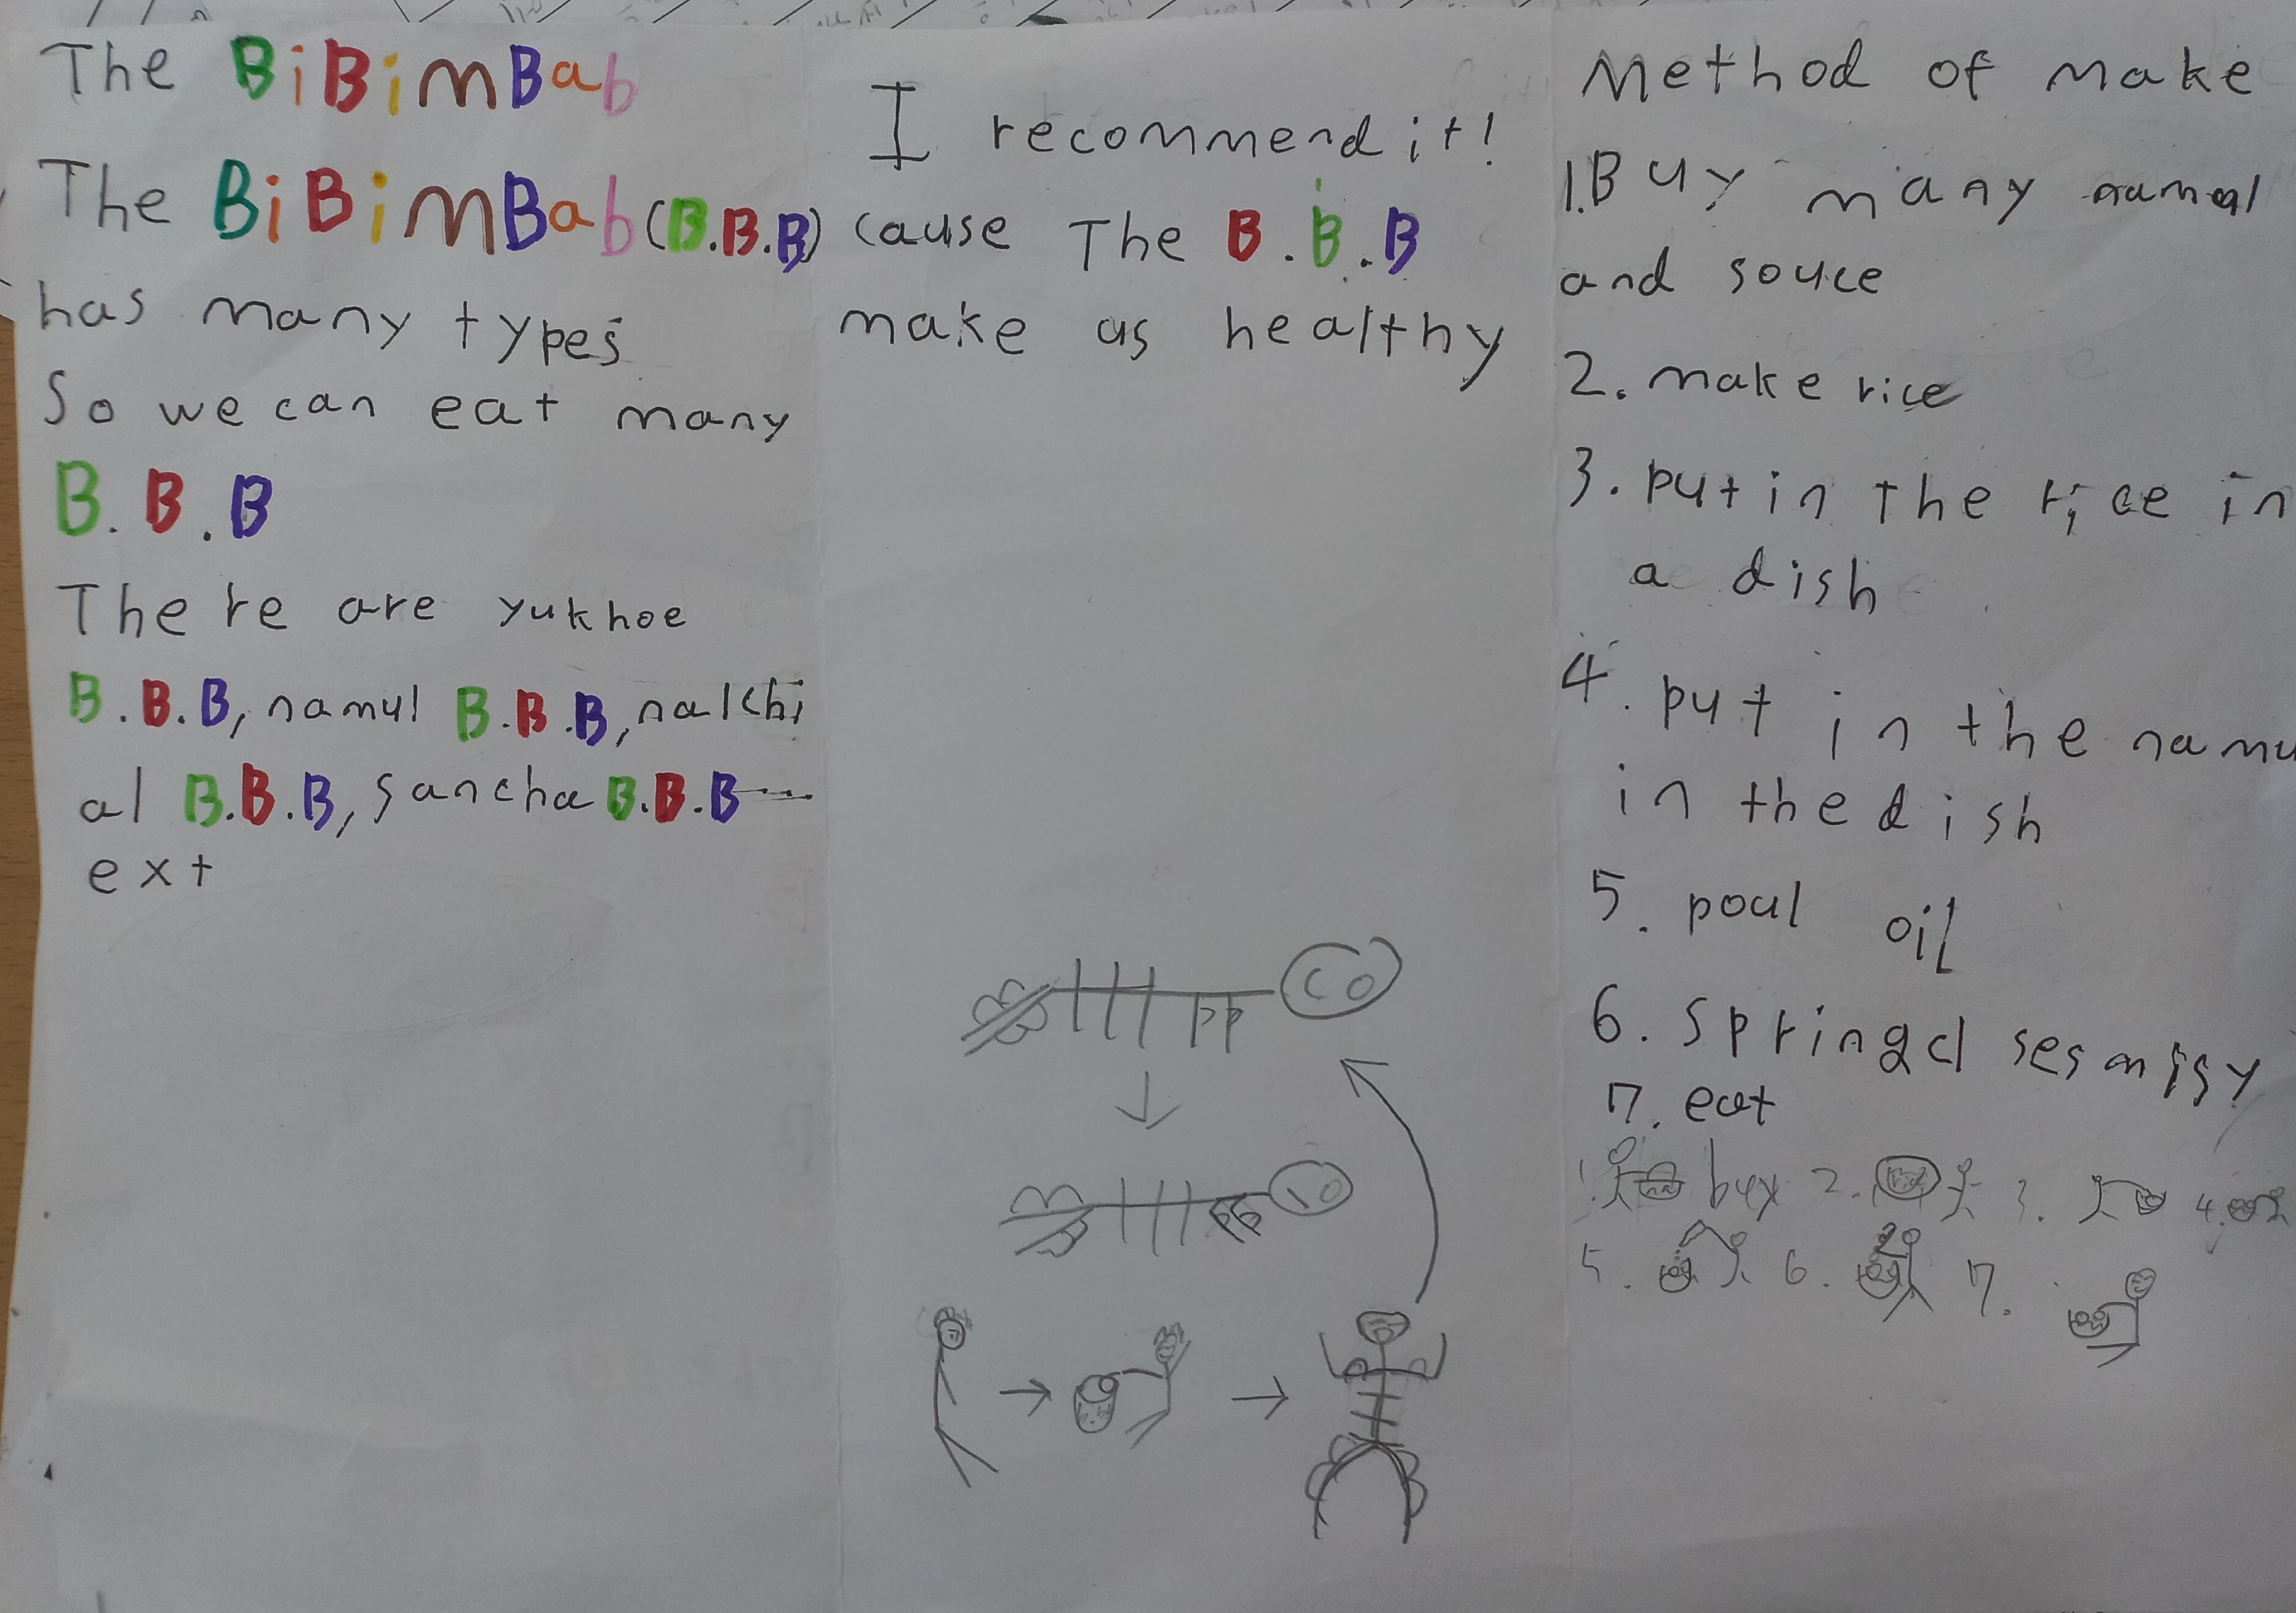 The BiBimBab
The BiBimBab (B.B.B)
has many types
So we can eat many
B.B.B
There are yukhoe
B.B.B, namul B.B.B, nalchi
al B.B.B, sanchae B.B.B
ext
I recommend it!
cause The B.B.B
make us healthy
Method of make
1. Buy many namul
and souce
2. make rice
3. put in the rice in
a dish
4. put in the namu
in the dish
5. poul oil
6.
7. eat
1. buy 2. 3. 4.
5. 6. 7.